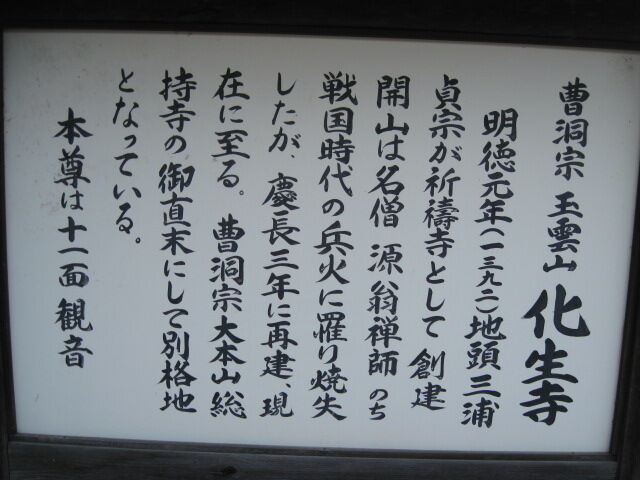 曹洞宗 玉雲山 化生寺
明徳元年(一三九一)地頭三浦
貞宗が祈禱寺として 創建
開山は名僧 源翁禅師 のち
戦国時代の兵火に罹り焼失
したが、慶長三年に再建、現
在に至る。曹洞宗大本山総
持寺の御直末にして別格地
となっている。
本尊は十一面観音